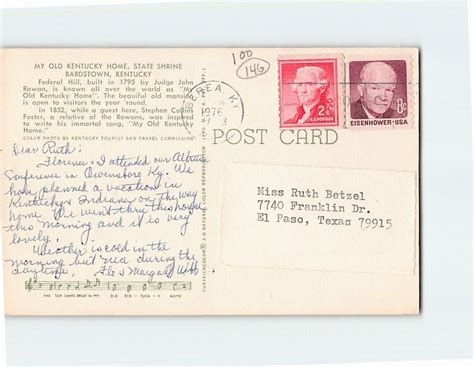 MY OLD KENTUCKY HOME, STATE SHRINE
BARDSTOWN, KENTUCKY
Federal Hill, built in 1795 by Judge John
Rowan, is known all over the world as "My
Old Kentucky Home". The beautiful old mansion
is open to visitors the year 'round.
In 1852, while a guest here, Stephen Collins
Foster, a relative of the Rowans, was inspired
to write his immortal song, "My Old Kentucky
Home."
COLOR PHOTO BY KENTUCKY TOURIST AND TRAVEL COMMISSION
100
146
BEREA KY
1976
2¢
U.S. POSTAGE
8¢
EISENHOWER·USA
POST CARD
Dear Ruth:
Florence & I attended our
Conference in Owensboro Ky. We
have planned a vacation in
Kentucky & Indiana on the way
home. We went thru this house
this morning and it is very
lovely.
Weather is cold in the
morning but nice during the
daytime.
Flo & Margaret
Miss Ruth Betzel
7740 Franklin Dr.
El Paso, Texas 79915